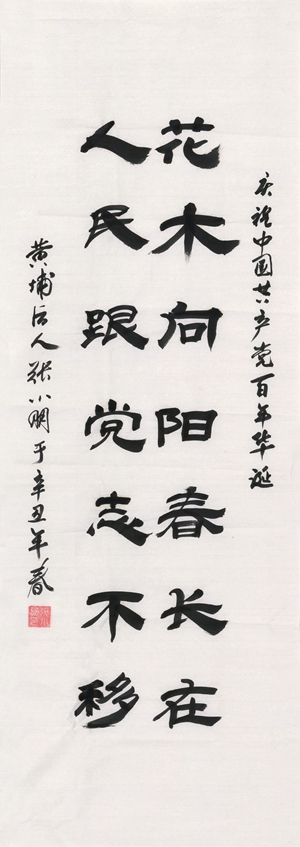 庆祝中国共产党百年华诞
花木向阳春长在
人民跟党志不移
黄埔后人张小明于辛丑年春